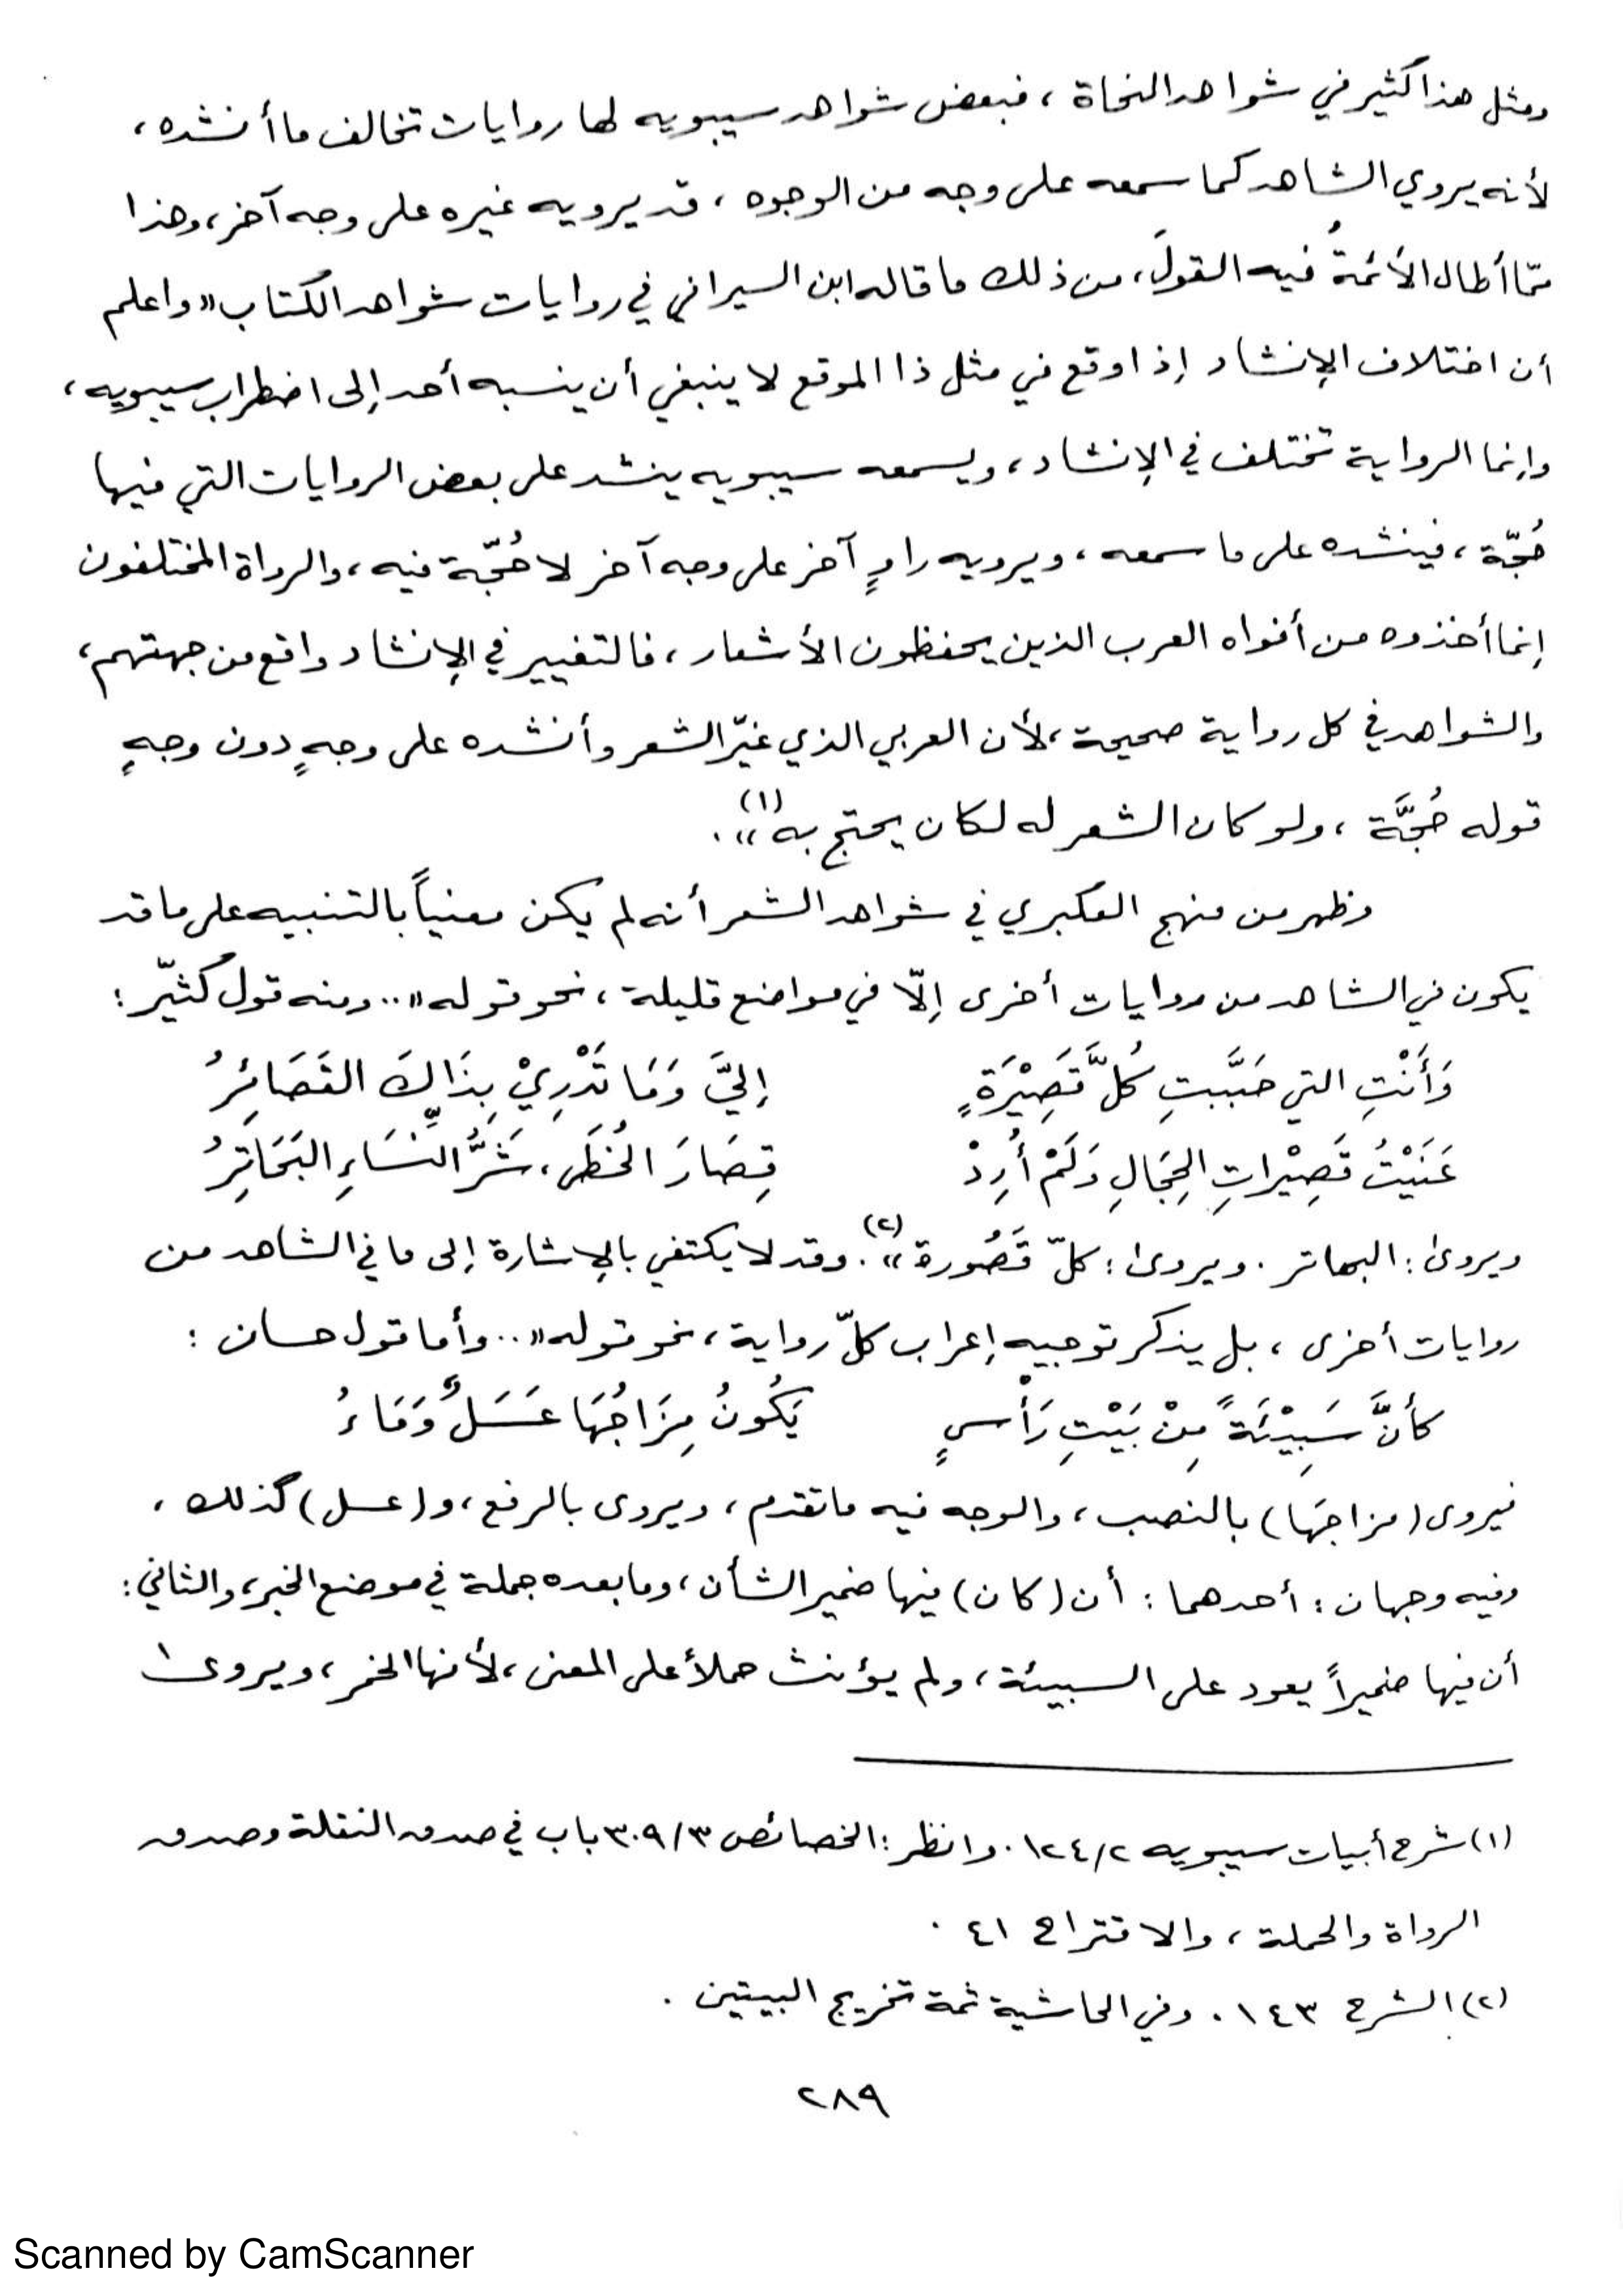 ومثل هذا كثير في شواهد النحاة ، فبعض شواهد سيبويه لها روايات تخالف ما أنشده ،
لأنه يروي الشاهد كما سمعه على وجه من الوجوه ، قد يرويه غيره على وجه آخر ، وهذا
ممّا أطال الأئمةُ فيه القولَ ، من ذلك ما قاله ابن السيرافي في روايات شواهد الكتاب « واعلم
أن اختلاف الإنشاد إذا وقع في مثل ذا الموقع لا ينبغي أن ينسبه أحد إلى اضطراب سيبويه ،
وإنما الرواية تختلف في الإنشاد ، ويسمعه سيبويه ينشد على بعض الروايات التي فيها
حُجّة ، فينشده على ما سمعه ، ويرويه راوٍ آخر على وجه آخر لا حُجّة فيه ، والرواة المختلفون
إنما أخذوه من أفواه العرب الذين يحفظون الأشعار ، فالتغيير في الإنشاد واقع من جهتهم ،
والشواهد في كل رواية صحيحة ، لأن العربي الذي غيّر الشعر وأنشده على وجهٍ دون وجهٍ
قوله حُجَّة ، ولو كان الشعر له لكان يحتج به »(١) .
وظهر من منهج العكبري في شواهد الشعر أنه لم يكن معنياً بالتنبيه على ما قد
يكون في الشاهد من روايات أخرى إلّا في مواضع قليلة ، نحو قوله « .. ومنه قول كثيّر :
وَأَنْتِ التي حَبَّبتِ كُلَّ قَصِيْرَةٍ إِليَّ وَمَا تَدْرِيْ بِذَاكَ القَصَائِرُ
عَنَيْتُ قَصِيْراتِ الحِجَالِ وَلَمْ أُرِدْ قِصَارَ الخُطَى ، شَرُّ النِّسَاءِ البَحَاتِرُ
ويروى : البهاتر . ويروى : كلّ قَصُورة »(٢) . وقد لا يكتفي بالإشارة إلى ما في الشاهد من
روايات أخرى ، بل يذكر توجيه إعراب كلّ رواية ، نحو قوله « .. وأما قول حسان :
كأنَّ سَبِيْئَةً مِنْ بَيْتِ رَأْسٍ يَكُونُ مِزَاجُهَا عَسَلٌ وَمَاءُ
فيروى ( مزاجَها ) بالنصب ، والوجه فيه ما تقدم ، ويروى بالرفع ، و ( عسل ) كذلك ،
وفيه وجهان : أحدهما : أن ( كان ) فيها ضمير الشأن ، وما بعده جملة في موضع الخبر ، والثاني :
أن فيها ضميراً يعود على السبيئة ، ولم يؤنث حملاً على المعنى ، لأنها الخمر ، ويروى
(١) شرح أبيات سيبويه ١٢٤/٢ . وانظر : الخصائص ٣٠٩/٣ باب في صدق النقلة وصدق
الرواة والحملة ، والاقتراح ٤١ .
(٢) الشرح ١٤٣ . وفي الحاشية ثمة تخريج البيتين .
٢٨٩
Scanned by CamScanner